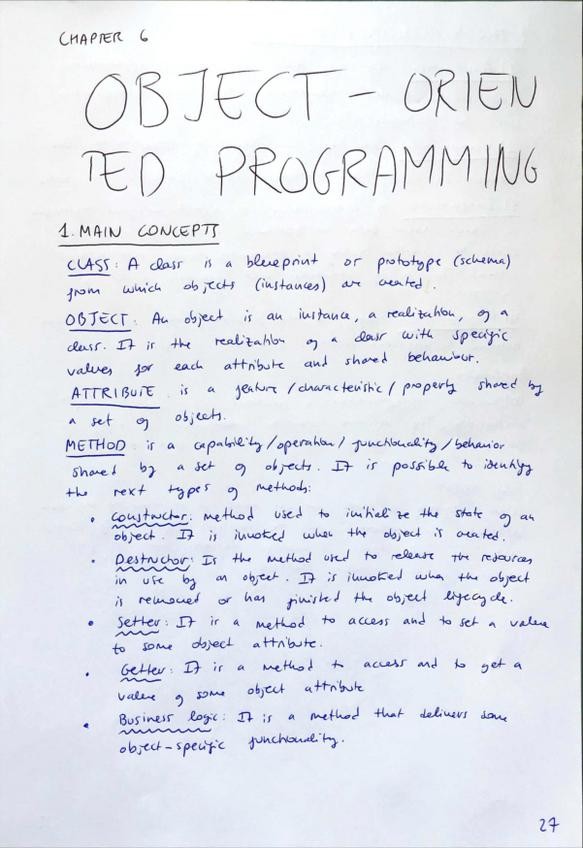 CHAPTER 6
OBJECT - ORIEN
TED PROGRAMMING
1. MAIN CONCEPTS
CLASS: A class is a blueprint or prototype (schema)
from which objects (instances) are created.
OBJECT: An object is an instance, a realization, of a
class. It is the realization of a class with specific
values for each attribute and shared behaviour.
ATTRIBUTE is a feature / characteristic / property shared by
a set of objects.
METHOD is a capability / operation / functionality / behavior
shared by a set of objects. It is possible to identify
the next types of methods:
• Constructor: method used to initialize the state of an
object. It is invoked when the object is created.
• Destructor: Is the method used to release the resources
in use by an object. It is invoked when the object
is removed or has finished the object lifecycle.
• Setter: It is a method to access and to set a value
to some object attribute.
• Getter: It is a method to access and to get a
value of some object attribute
• Business logic: It is a method that delivers some
object-specific functionality.
27